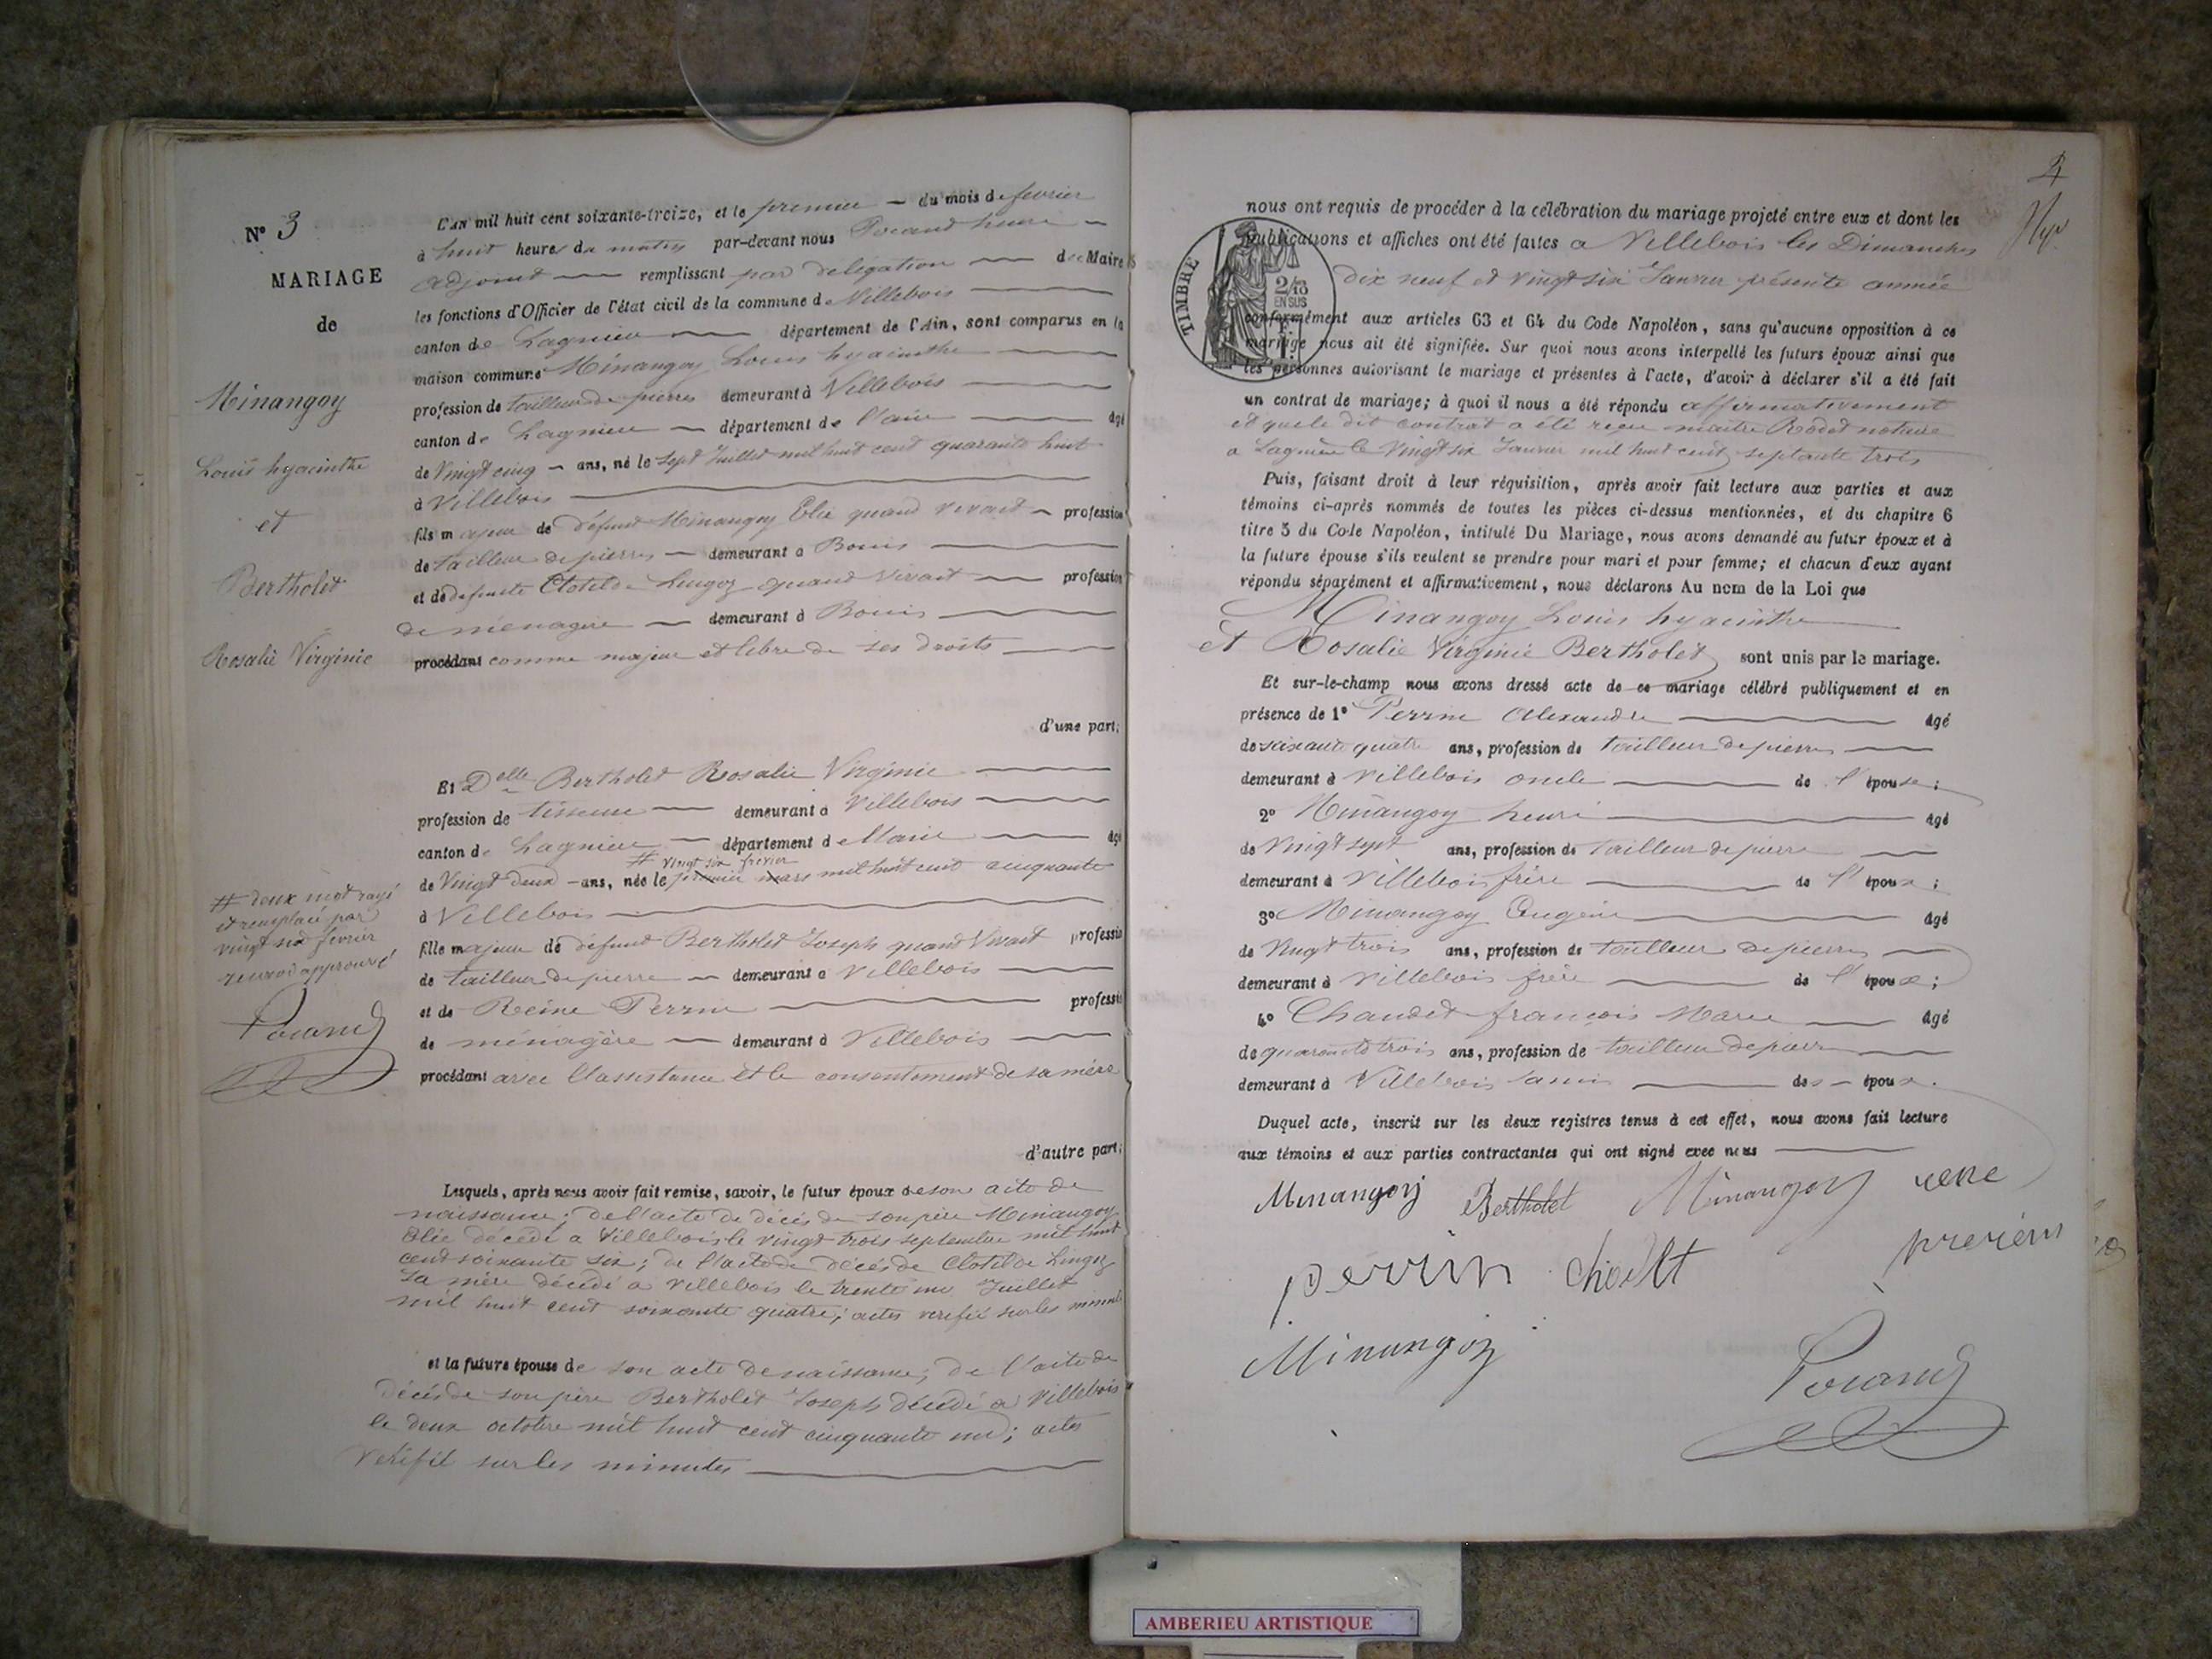 N° 3
MARIAGE
de
Minangoy
Louis hyacinthe
et
Bertholet
Rosalie Virginie
# deux mot rayé
et remplacé par
vingt six fevrier
renvoi approuvé
Pocand
L'AN mil huit cent soixante-treize, et le premier du mois de fevrier
à huit heures du matin par-devant nous Pocand
adjoint remplissant par délégation du Maire
les fonctions d'Officier de l'état civil de la commune de Villebois
canton de Lagnieu département de l'Ain, sont comparus en la
maison commune Minangoy Louis hyacinthe
profession de tailleur de pierres demeurant à Villebois
canton de Lagnieu département de l'ain âgé
de Vingt cinq ans, né le sept Juillet mil huit cent quarante huit
à Villebois
fils majeur de défunt Minangoy Elie quand vivait profession
de tailleur de pierres demeurant a Bouis
et de defunte Clotilde Lingoz quand vivait profession
de ménagère demeurant à Bouis
procédant comme majeur et libre de ses droits
d'une part;
Et Delle Bertholet Rosalie Virginie
profession de tisseuse demeurant a Villebois
canton de Lagnieu département de l'ain âgé
# vingt six fevrier
de Vingt deux ans, née le premier mars mil huit cent cinquante
à Villebois
fille majeure de défunt Bertholet Joseph quand Vivait professio
de tailleur de pierre demeurant a Villebois
et de Reine Perrin professio
de ménagère demeurant à Villebois
procédant avec l'assistance et le consentement de sa mère
d'autre part;
Lesquels, après nous avoir fait remise, savoir, le futur époux de son acte de
naissance; de l'acte de décès de son père Minangoy
Elie décédé a Villebois le vingt trois septembre mil huit
cent soixante six; de l'acte de décès de Clotilde Lingoz
sa mère décédé a Villebois le trente un Juillet
mil huit cent soixante quatre; actes verifié sur les minutes
et la future épouse de son acte de naissance; de l'acte de
décès de son père Bertholet Joseph décédé a Villebois
le deux octobre mil huit cent cinquante un; actes
vérifié sur les minutes
nous ont requis de procéder à la célébration du mariage projeté entre eux et dont les
publications et affiches ont été faites a Villebois les Dimanches
dix neuf et vingt six Janvier présente année
TIMBRE 2/10 EN SUS
conformément aux articles 63 et 64 du Code Napoléon, sans qu'aucune opposition à ce
mariage nous ait été signifiée. Sur quoi nous avons interpellé les futurs époux ainsi que
les personnes autorisant le mariage et présentes à l'acte, d'avoir à déclarer s'il a été fait
un contrat de mariage; à quoi il nous a été répondu affirmativement
et que le dit contrat a été reçu maitre Rodet notaire
a Lagnieu le Vingt six Janvier mil huit cent septante trois
Puis, faisant droit à leur réquisition, après avoir fait lecture aux parties et aux
témoins ci-après nommés de toutes les pièces ci-dessus mentionnées, et du chapitre 6
titre 5 du Code Napoléon, intitulé Du Mariage, nous avons demandé au futur époux et à
la future épouse s'ils veulent se prendre pour mari et pour femme; et chacun d'eux ayant
répondu séparément et affirmativement, nous déclarons Au nom de la Loi que
Minangoy Louis hyacinthe
et Rosalie Virginie Bertholet sont unis par le mariage.
Et sur-le-champ nous avons dressé acte de ce mariage célébré publiquement et en
présence de 1° Perrin Alexandre âgé
de soixante quatre ans, profession de tailleur de pierres
demeurant à Villebois oncle de l'épouse;
2° Minangoy henri âgé
de Vingt sept ans, profession de Tailleur de pierre
demeurant à Villebois frère de l'époux;
3° Minangoy Eugène âgé
de Vingt trois ans, profession de tailleur de pierres
demeurant à Villebois frère de l'époux;
4° Chaudet françois Marie âgé
de quarante trois ans, profession de tailleur de pierre
demeurant à Villebois l'ami des époux.
Duquel acte, inscrit sur les deux registres tenus à cet effet, nous avons fait lecture
aux témoins et aux parties contractantes qui ont signé avec nous
Minangoy Bertholet Minangoy
perrin
Minangoy
Pocand
AMBERIEU ARTISTIQUE